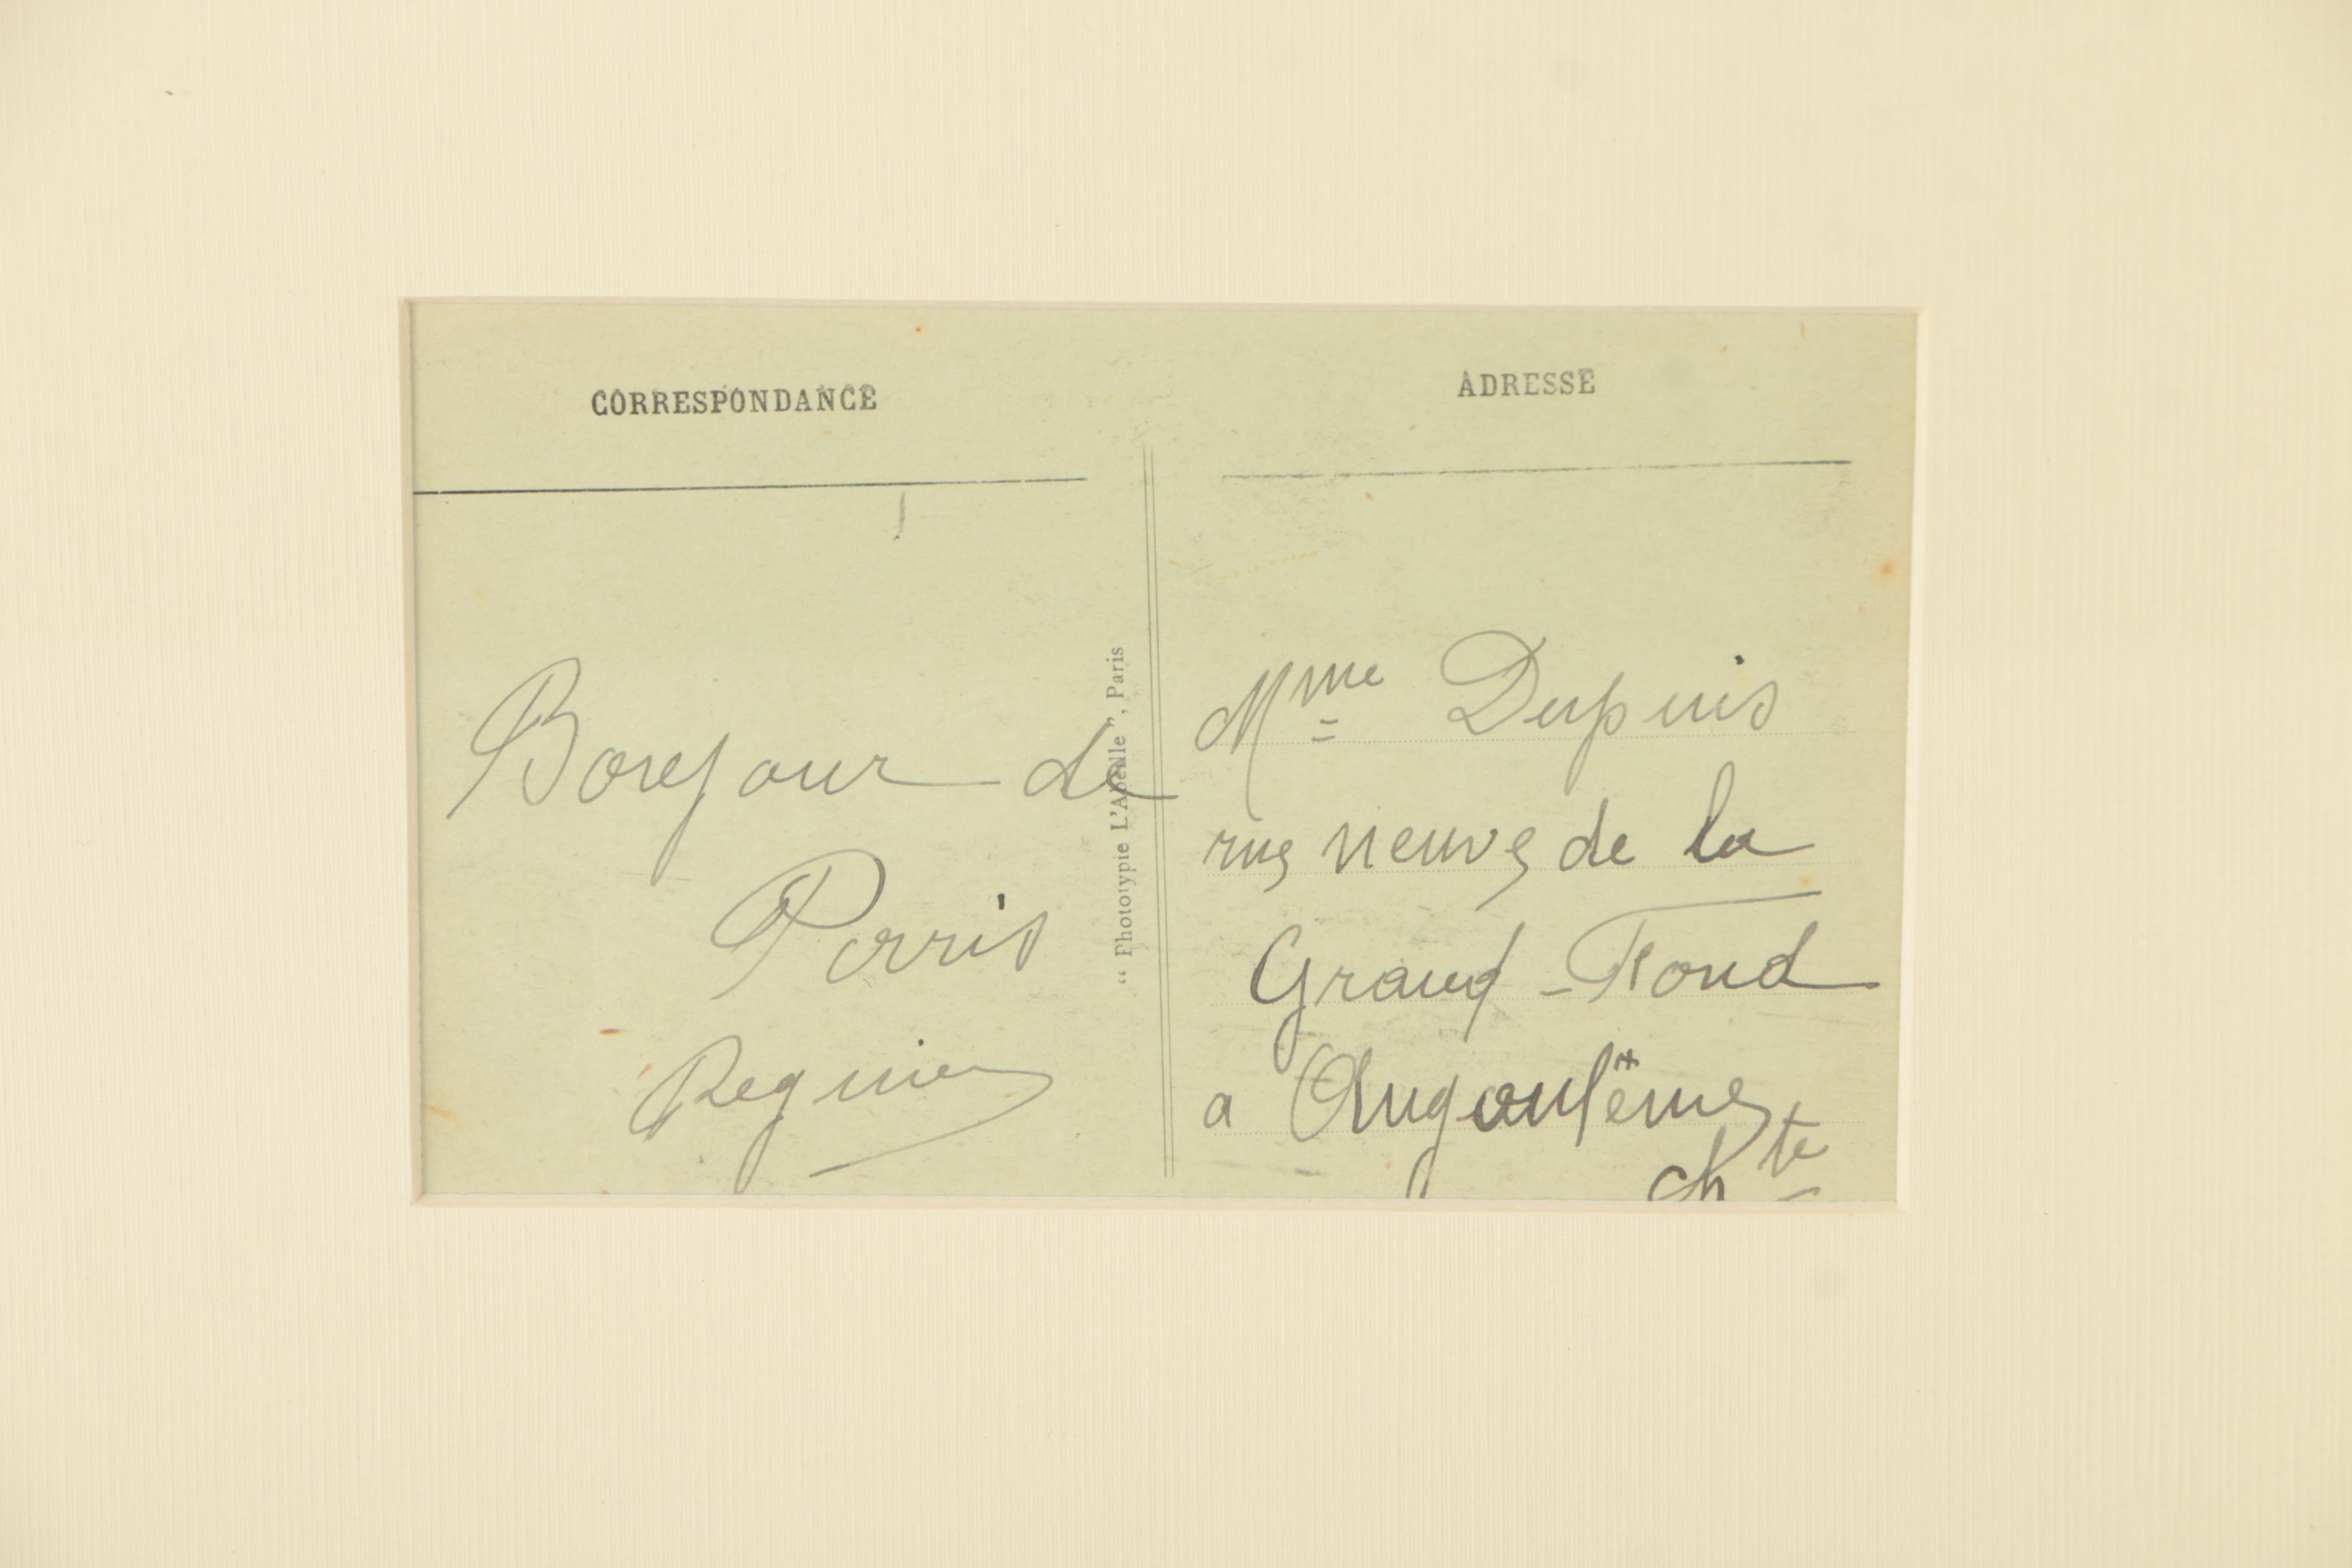 CORRESPONDANCE
Bonjour de
Paris
Regnier
" Phototypie L'Abeille ", Paris
ADRESSE
Mme Dupuis
rue neuve de la
Grand-Fond
a Angoulême
chte